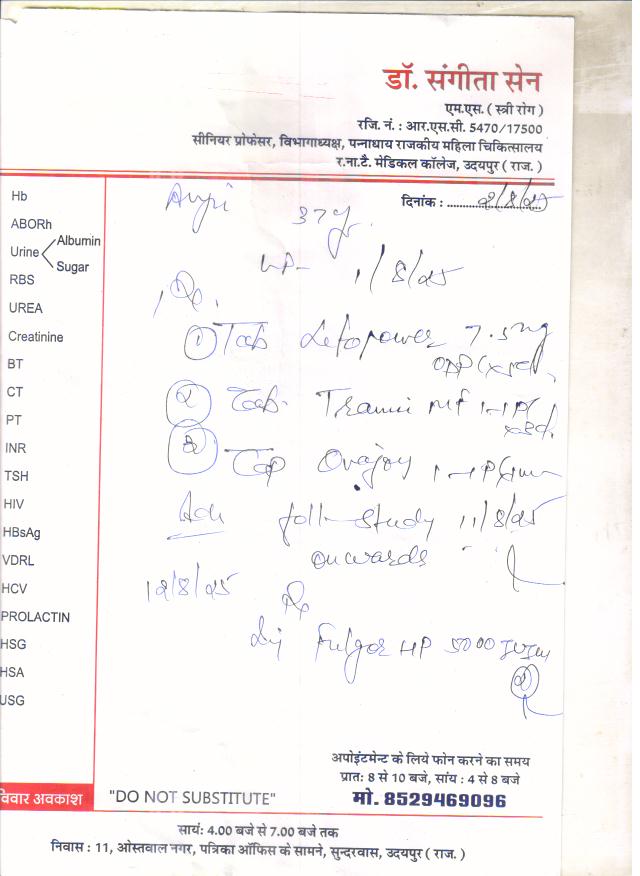 डॉ. संगीता सेन
एम.एस. ( स्त्री रोग )
रजि. नं. : आर.एस.सी. 5470/17500
सीनियर प्रोफेसर, विभागाध्यक्ष, पन्नाधाय राजकीय महिला चिकित्सालय
र.ना.टै. मेडिकल कॉलेज, उदयपुर ( राज. )
दिनांक : 2/8/25
37y
1/8/25
Rx.
① Tab 7.5mg
② Tab. MF 1-1
③ Cap Ovajoy 1-1
Adv foll- study 11/8/25
onwards
12/8/25
Rx
Inj HP 5000 IU
Hb
ABORh
Urine Albumin
Sugar
RBS
UREA
Creatinine
BT
CT
PT
INR
TSH
HIV
HBsAg
VDRL
HCV
PROLACTIN
HSG
HSA
USG
अपोइंटमेन्ट के लिये फोन करने का समय
प्रात: 8 से 10 बजे, सांय : 4 से 8 बजे
मो. 8529469096
विवार अवकाश
"DO NOT SUBSTITUTE"
सायं: 4.00 बजे से 7.00 बजे तक
निवास : 11, ओस्तवाल नगर, पत्रिका ऑफिस के सामने, सुन्दरवास, उदयपुर ( राज. )